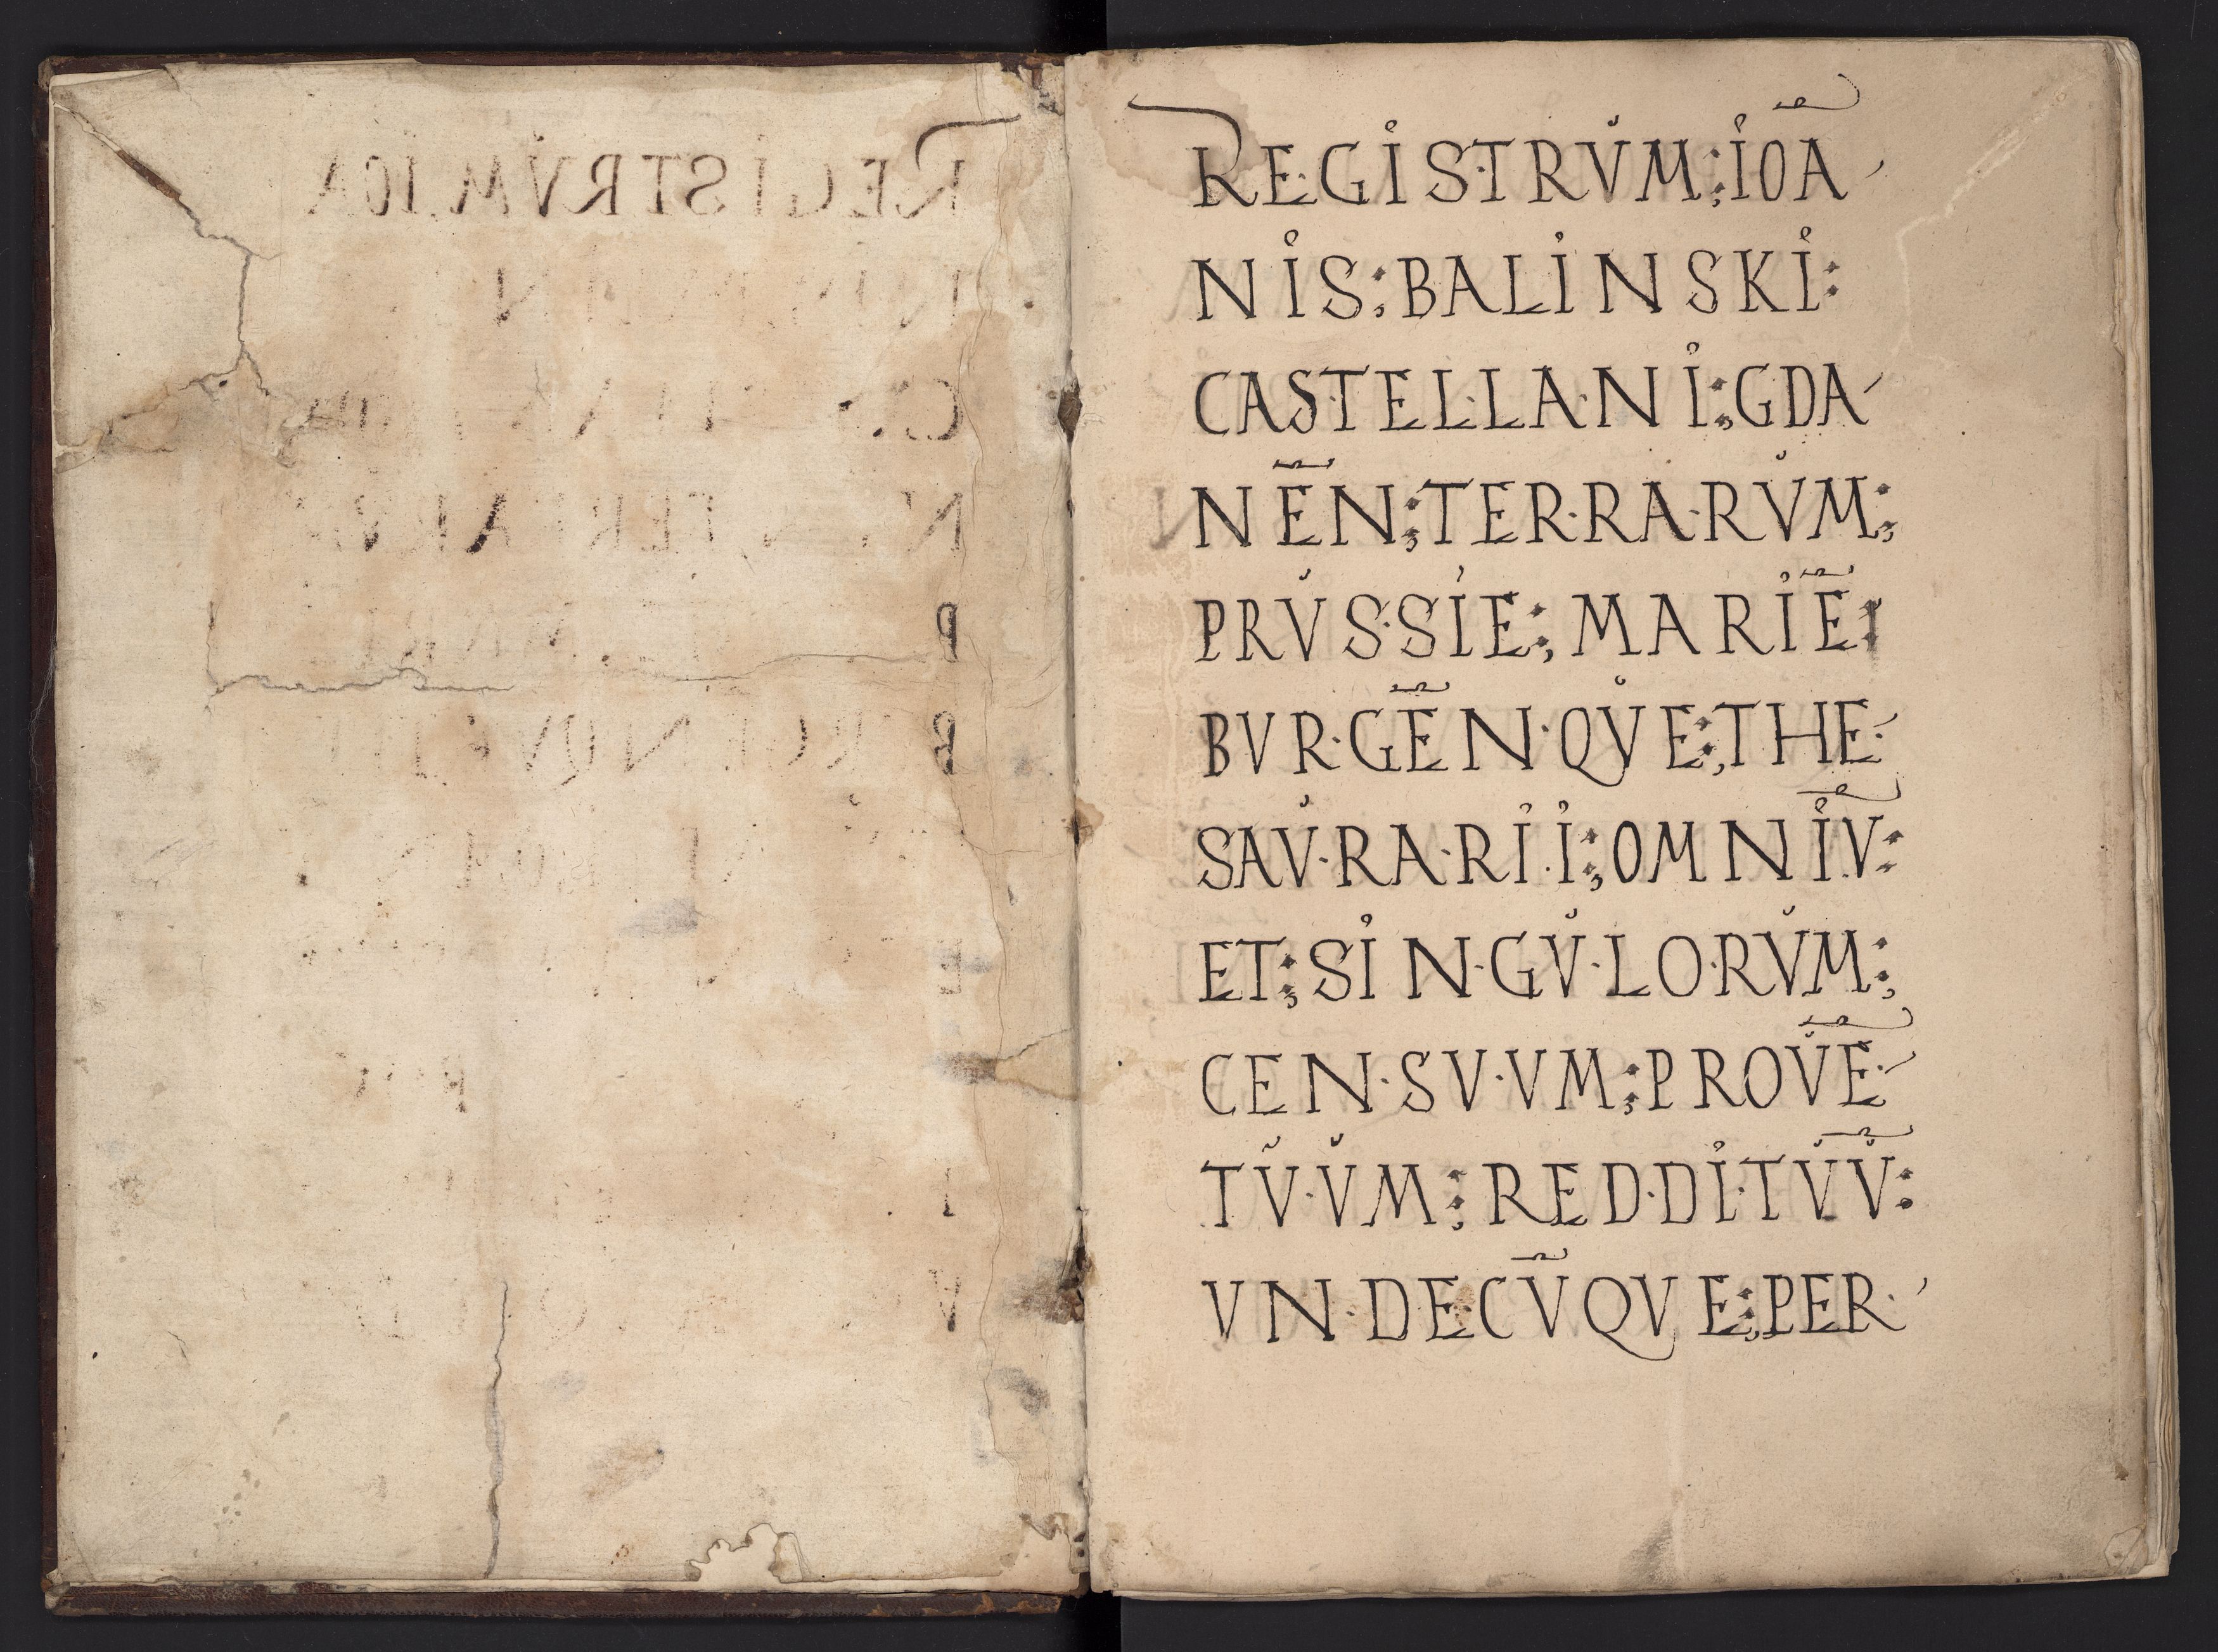 REGISTRVM: IOA
NIS: BALINSKI:
CASTELLANI: GDA
NEN̄: TERRARVM:
PRVSSIE: MARIĒ:
BVRGĒNQVE: THE
SAVRARII: OMNIV̄:
ET: SINGVLORVM:
CENSVVM: PROVĒ
TVVM: REDDITVV̄:
VNDECV̄QVE: PER